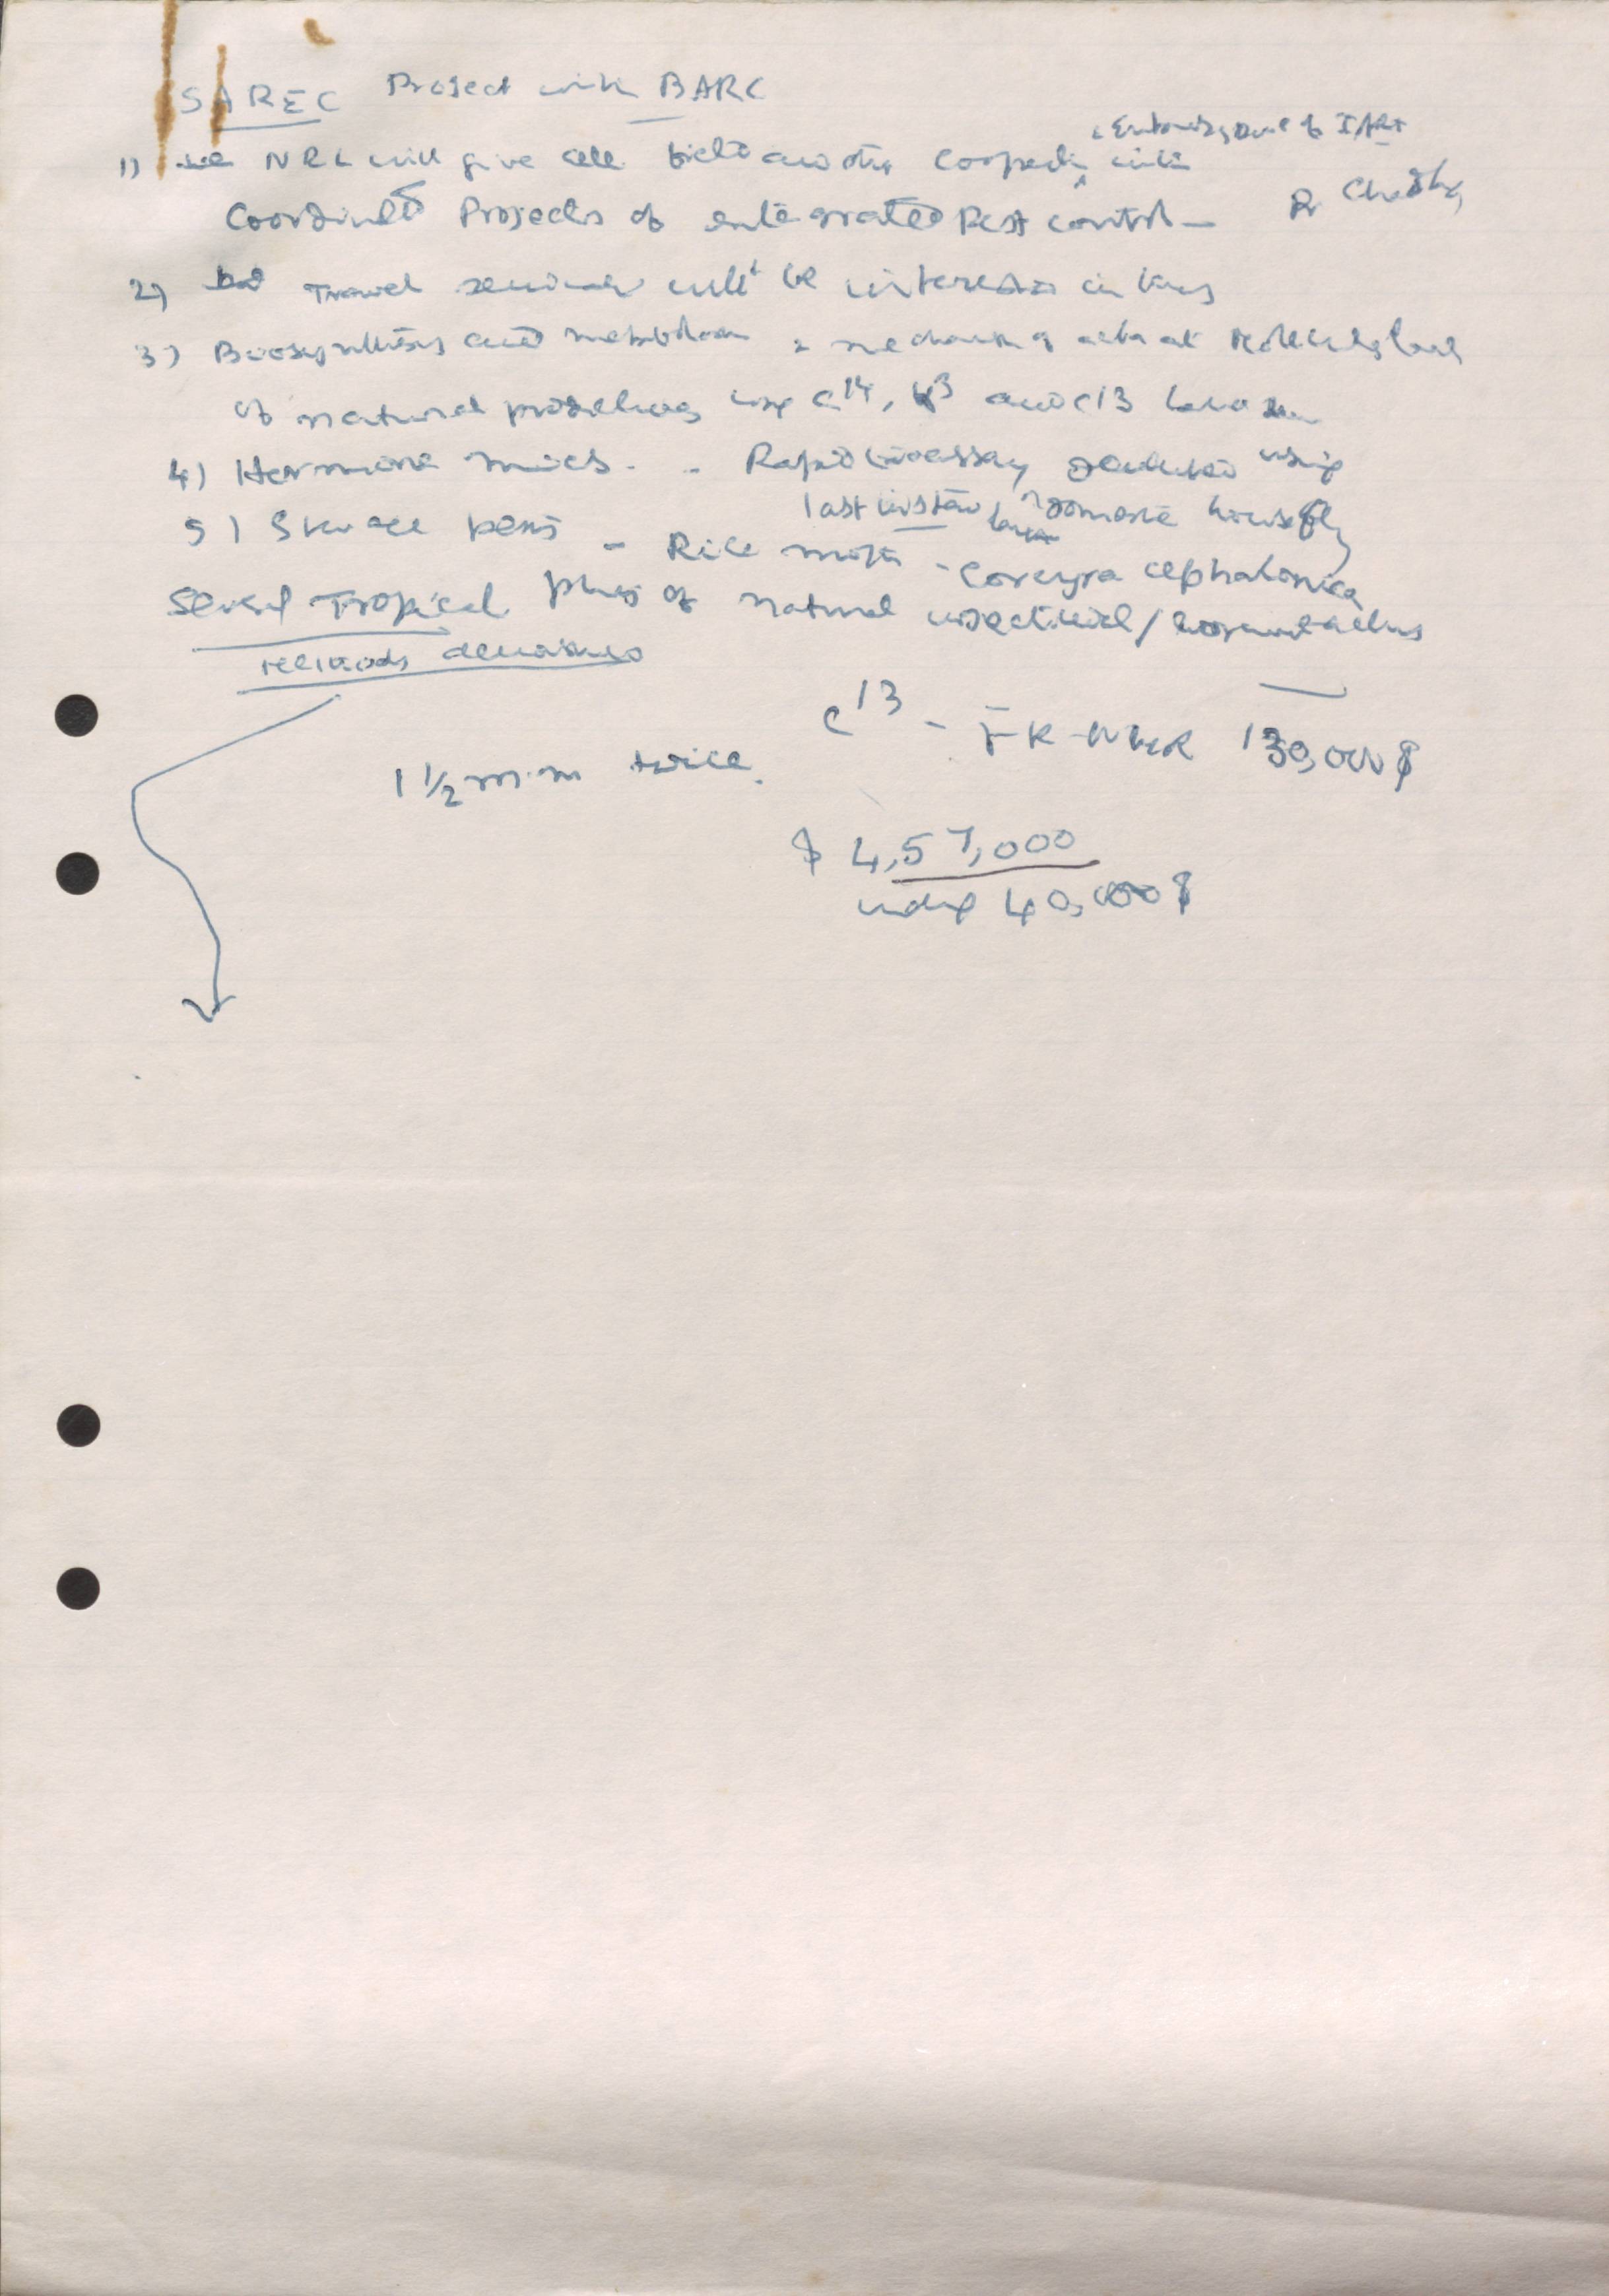 SAREC Project with BARC
Entomology Div of IARI
1) NRL will give all field and other cooperation with
Coordinated Projects of integrated Pest control - Dr
2) Travel seminar will be interested in this
3) Biosynthesis and metabolism & mechanism of action at Molecular level
of natural products using C14, H3 and C13
4) Hormone mimics - Rapid bioassay using
last instar larvae domestic housefly
5) Storage pests - Rice moth - Corcyra cephalonica
Several Tropical plants of natural insecticidal / hormonal
methods
C13 - FT-NMR 130,000 $
1 1/2 m.m twice.
$ 4,57,000
40,000 $